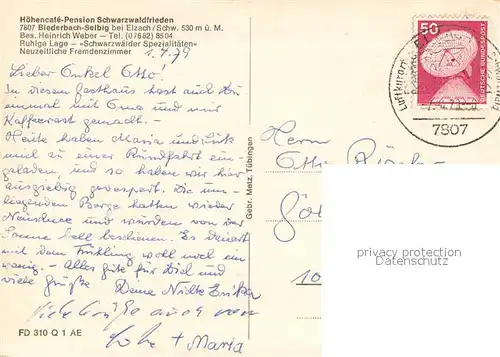 Höhencafé-Pension Schwarzwaldfrieden
7807 Biederbach-Selbig bei Elzach/Schw. 530 m ü. M.
Bes. Heinrich Weber — Tel. (07682) 8504
Ruhige Lage — »Schwarzwälder Spezialitäten«
Neuzeitliche Fremdenzimmer
1.4.79
Lieber Onkel Otto!
In diesem Gasthaus hast auch Du
einmal mit Oma und mir
Kaffeerast gemacht. –
Heute haben Maria und
mich zu einer Rundfahrt ein-
geladen, und so haben wir hier
ausgiebig gevespert. Die um-
liegenden Berge hatten wieder
Neuschnee und wurden von der
Sonne hell beschienen. Es dauert
mit dem Frühling wohl noch ein
wenig. – Alles gute für Dich und
viele Grüße Deine Nichte Erika
Viele Grüße auch von
+ Maria
FD 310 Q 1 AE
Gebr. Metz, Tübingen
50
DEUTSCHE BUNDESPOST
Luftkurort
7807
Herrn
Otto
privacy protection
Datenschutz
10